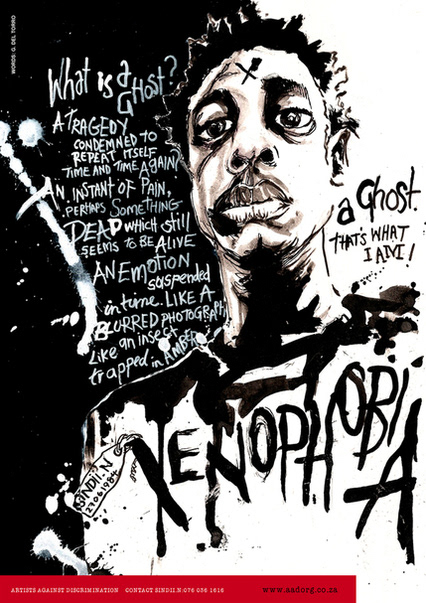 WORDS: G. DEL TORRO
What is a
GHost?
A TRAGEDY
CONDEMNED TO
REPEAT ITSELF
TIME AND TIME AGAIN/
AN INSTANT OF PAIN,
PERHAPS SOMETHING
DEAD which still
SEEMS TO BE ALIVE
AN EMOTION
suspended
in time. LIKE A
BLURRED PHOTOGRAPH,
Like an insect
trapped in AMBER
a GHost.
THAT'S WHAT
I AM!
XENOPHOBIA
SiNDii.N
27061984
ARTISTS AGAINST DISCRIMINATION CONTACT SINDII.N:076 036 1616
www.aadorg.co.za